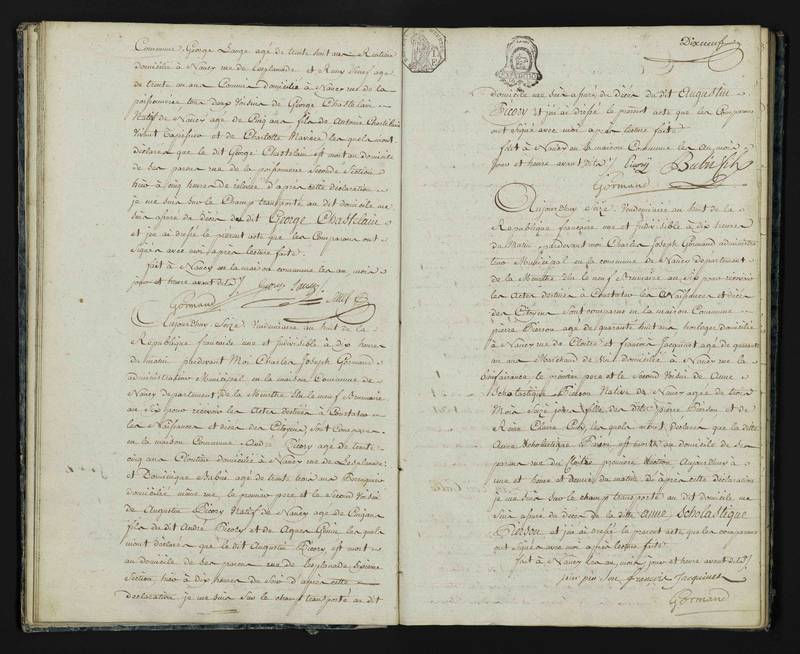 Commune George Lange agé de trente huit ans Rentier
domicilié à Nancy rue de l'esplanade et Remy Sittel agé
de trente un ans Commis domicilié à Nancy rue de la
poissonnerie tous deux voisins de George Chastelain
Natif de Nancy agé de cinq ans fils de Antoine Chastelain
vivant tapissier et de Charlotte lesquels m'ont
déclaré que le dit George Chastelain est mort au domicile
de ses parens rue de la poissonnerie Seconde Section
hier à cinq heures de relevée d'après cette déclaration
je me suis sur le Champ transporté au dit domicile me
suis assuré du décès du dit George Chastelain
et j'ai dressé le présent acte que les Comparans ont
signés avec moi après lecture faite
fait à Nancy en la maison commune les an, mois
jour et heure avant dits
Gormand
Aujourd'huy Seize Vendemiaire an huit de la
Republique françoise une et indivisible à dix heures
du matin pardevant Moi Charles Joseph Gormand
administrateur Municipal en la maison Commune de
Nancy Departement de la Meurthe Elu le neuf Brumaire
an Six pour recevoir les Actes destinés à Constater
les Naissances et décès des Citoyens, sont comparus
en la maison Commune André Picory agé de trente
cinq ans Cloutier domicilié à Nancy rue de l'esplanade
et Dominique Babin agé de trente trois ans
domicilié même rue, le premier père et le Second Voisin
de Augustin Picory Natif de Nancy agé de Cinq ans
fils du dit André Picory et de Agnes lesquels
m'ont déclarés que le dit Augustin Picory est mort
au domicile de ses parens rue de l'esplanade
Section hier à dix heures du Soir d'après cette
déclaration je me suis sur le champ transporté au dit
Dixneuf
domicile me suis assuré du décès du dit Augustin
Picory et j'ai dressé le présent acte que les Comparans
ont signés avec moi après lecture faite
fait à Nancy en la maison Commune les an, mois
jour et heure avant dits
Gormand
Aujourd'huy Seize Vendemiaire an huit de la
Republique françoise une et indivisible à dix heures
du Matin pardevant moi Charles Joseph Gormand administra
teur Municipal en la commune de Nancy Departement
de la Meurthe Elu le neuf Brumaire an Six pour recevoir
les Actes destinés à Constater les Naissances et décès
des Citoyens sont comparus en la maison Commune
pierre Pierson agé de quarante huit ans horloger domicilié
à Nancy rue du Cloitre et francois Jacquinet agé de quarante
un ans Marchand de vin domicilié à Nancy rue la
bienfaisance le premier père et le Second Voisin de Anne
Scholastique Pierson Native de Nancy agée de trois
Mois Seize jours fille des dits pierre Pierson et de
Reine Claire lesquels m'ont déclaré que la ditte
Anne Scholastique Pierson est morte au domicile de ses
parens rue du Cloitre première Section Aujourd'huy à
une et heure et demie du matin d'après cette déclaration
je me suis sur le champ transporté au dit domicile me
suis assuré du décès de la ditte anne Scholastique
Pierson et j'ai dressé le présent acte que les comparans
ont signés avec moi après lecture faite
fait à Nancy les an, mois jour et heure avant dits
francois Jacquinet
Gormand